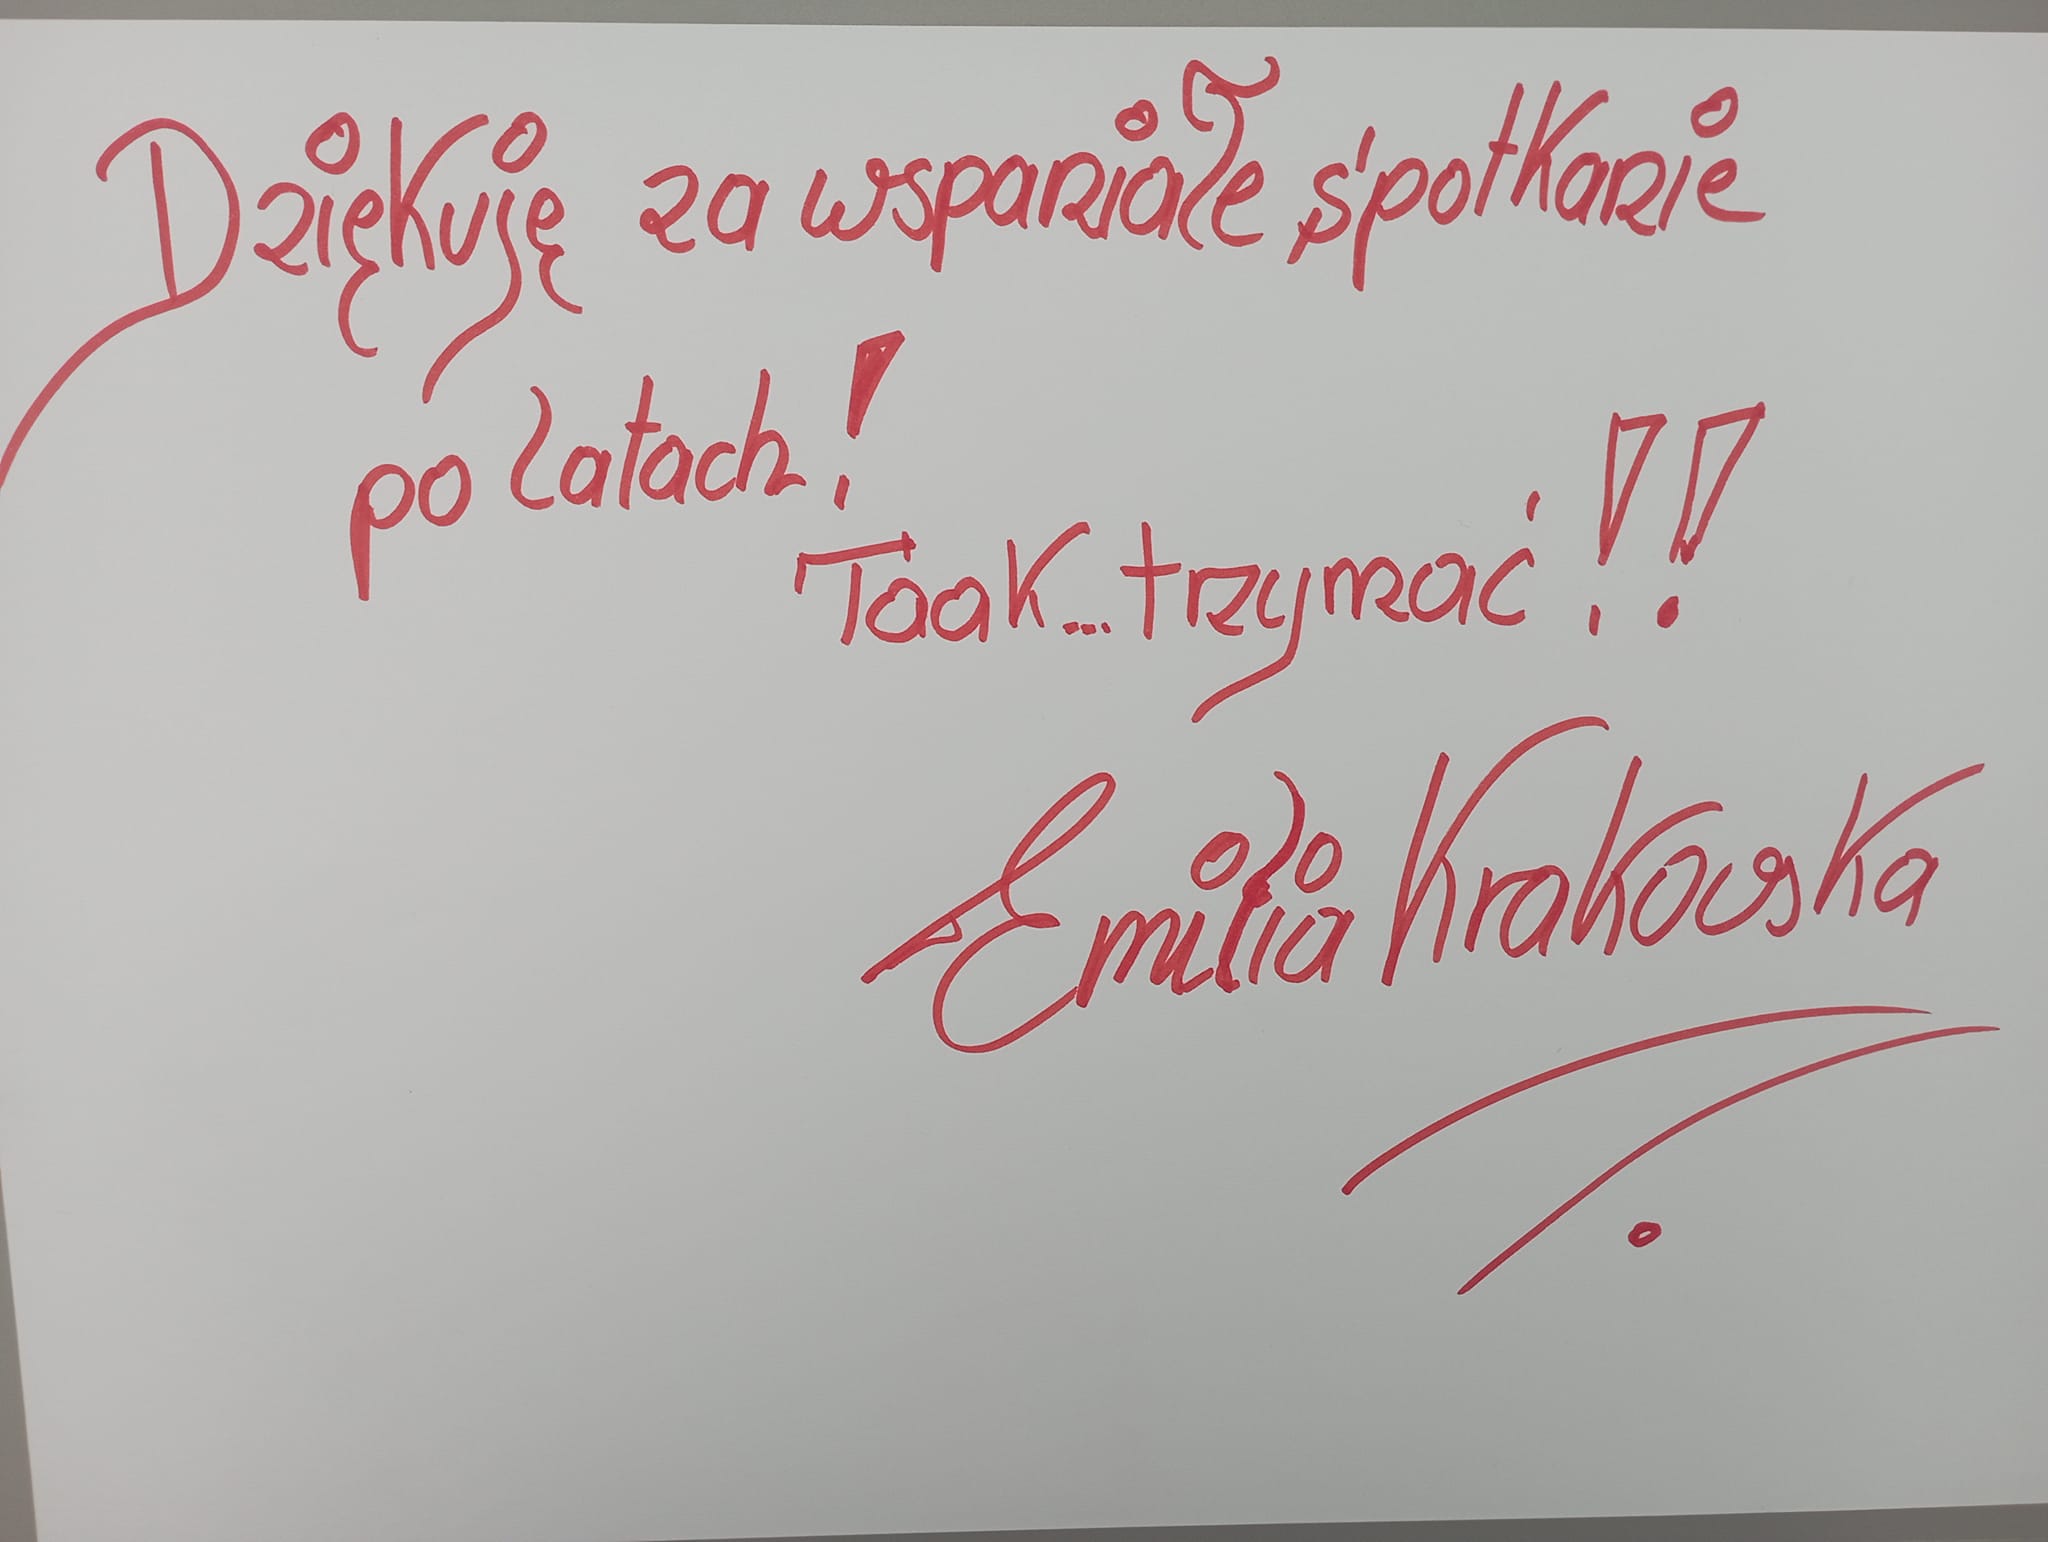 Dziękuję za wspaniałe spotkanie
po latach!
Taak...trzymać!!
Emilia Krakowska